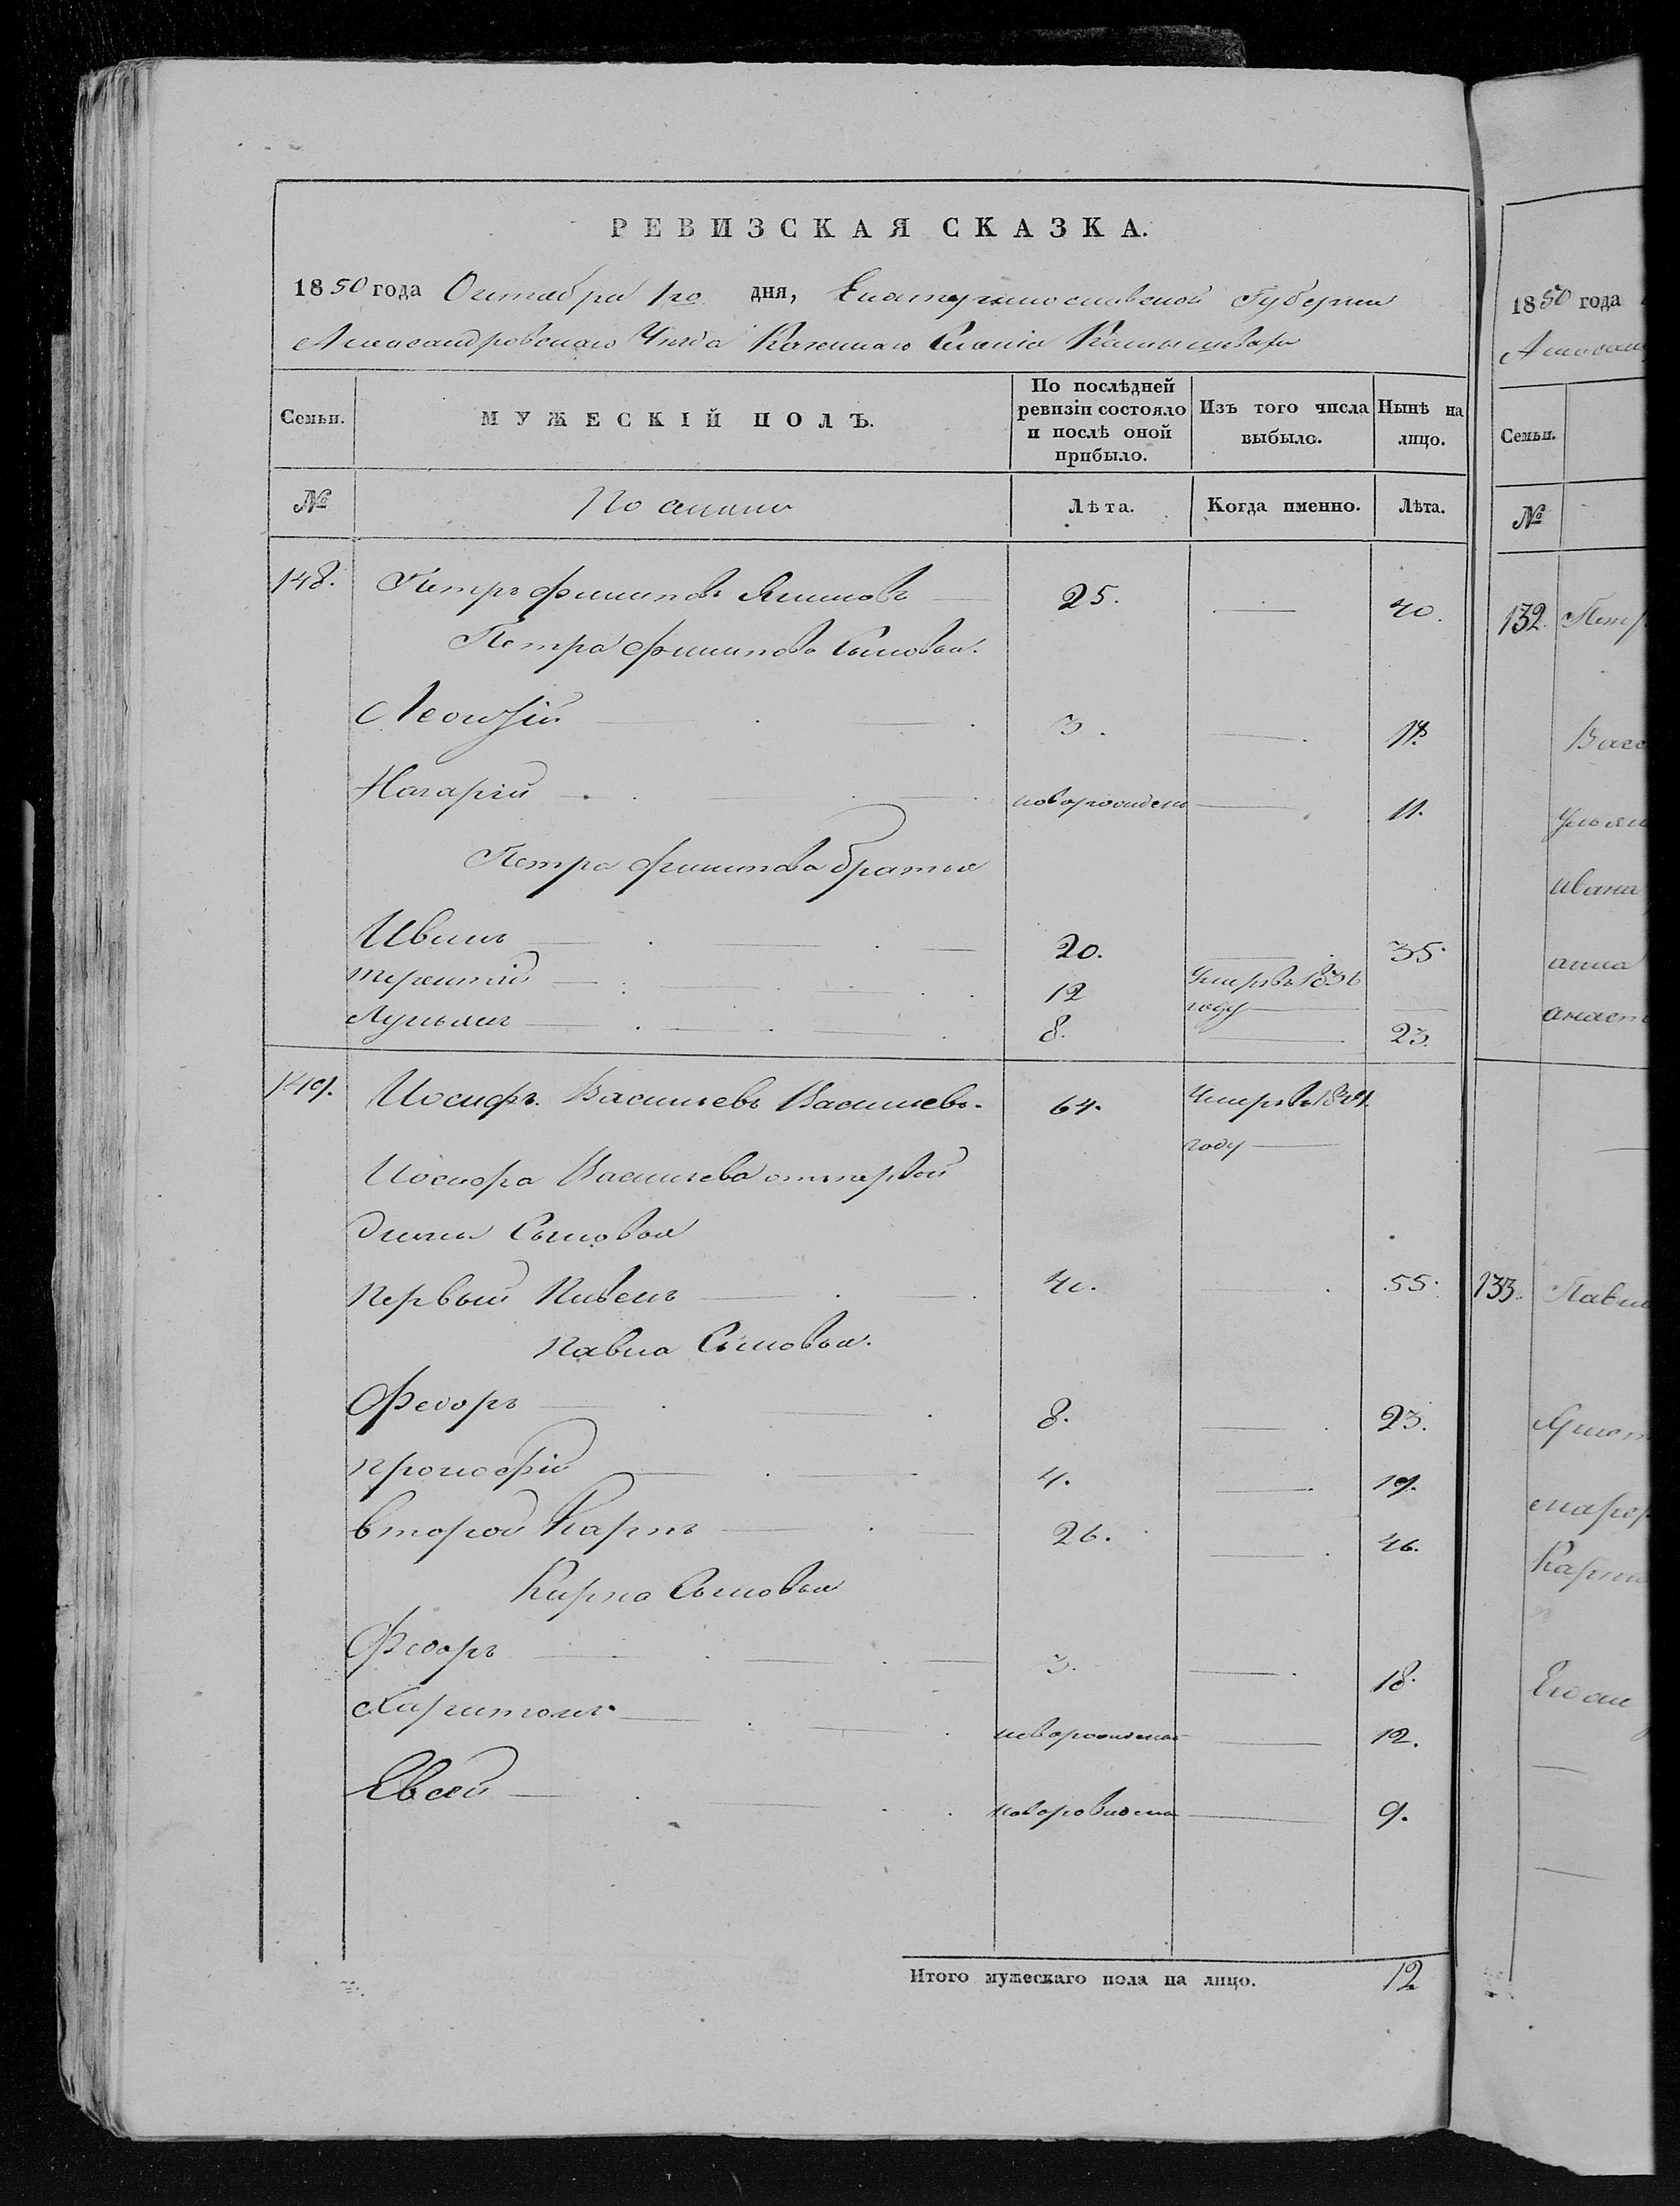 РЕВИЗСКАЯ СКАЗКА.
1850 года Октября 1го дня, Екатеринославской Губернии
Александровскаго Уезда Казеннаго Селенія
Семьи.
МУЖЕСКІЙ ПОЛЪ.
По послѣдней ревизіи состояло и послѣ оной прибыло.
Изъ того числа выбыло.
Нынѣ на лицо.
№
Лѣта.
Когда именно.
Лѣта.
148. Петръ Филиповъ 25. — 40.
Петра Филипова Сыновья.
Леонтій 3. —
Назарій новорожденъ — 11.
Петра Филипова братья
Иванъ 20. — 35.
Терентій 12 Умеръ въ 1836
году —
Лукьянъ 8. — 23.
149. Иосифъ Васильевъ Васильевъ. 64. Умеръ въ
году —
Иосифа Васильева отъ первой
жены Сыновья
первый Павелъ 40. — 55.
Павла Сыновья.
Федоръ 8. — 23.
Прокофій 4. — 19.
второй Карпъ 26. —
Карпа Сыновья
Федоръ 3. — 18.
Харитонъ новорожденъ — 12.
Евсей новорожденъ — 9.
Итого мужескаго пола на лицо. 12
1850 года
Семьи.
№
132.
133.